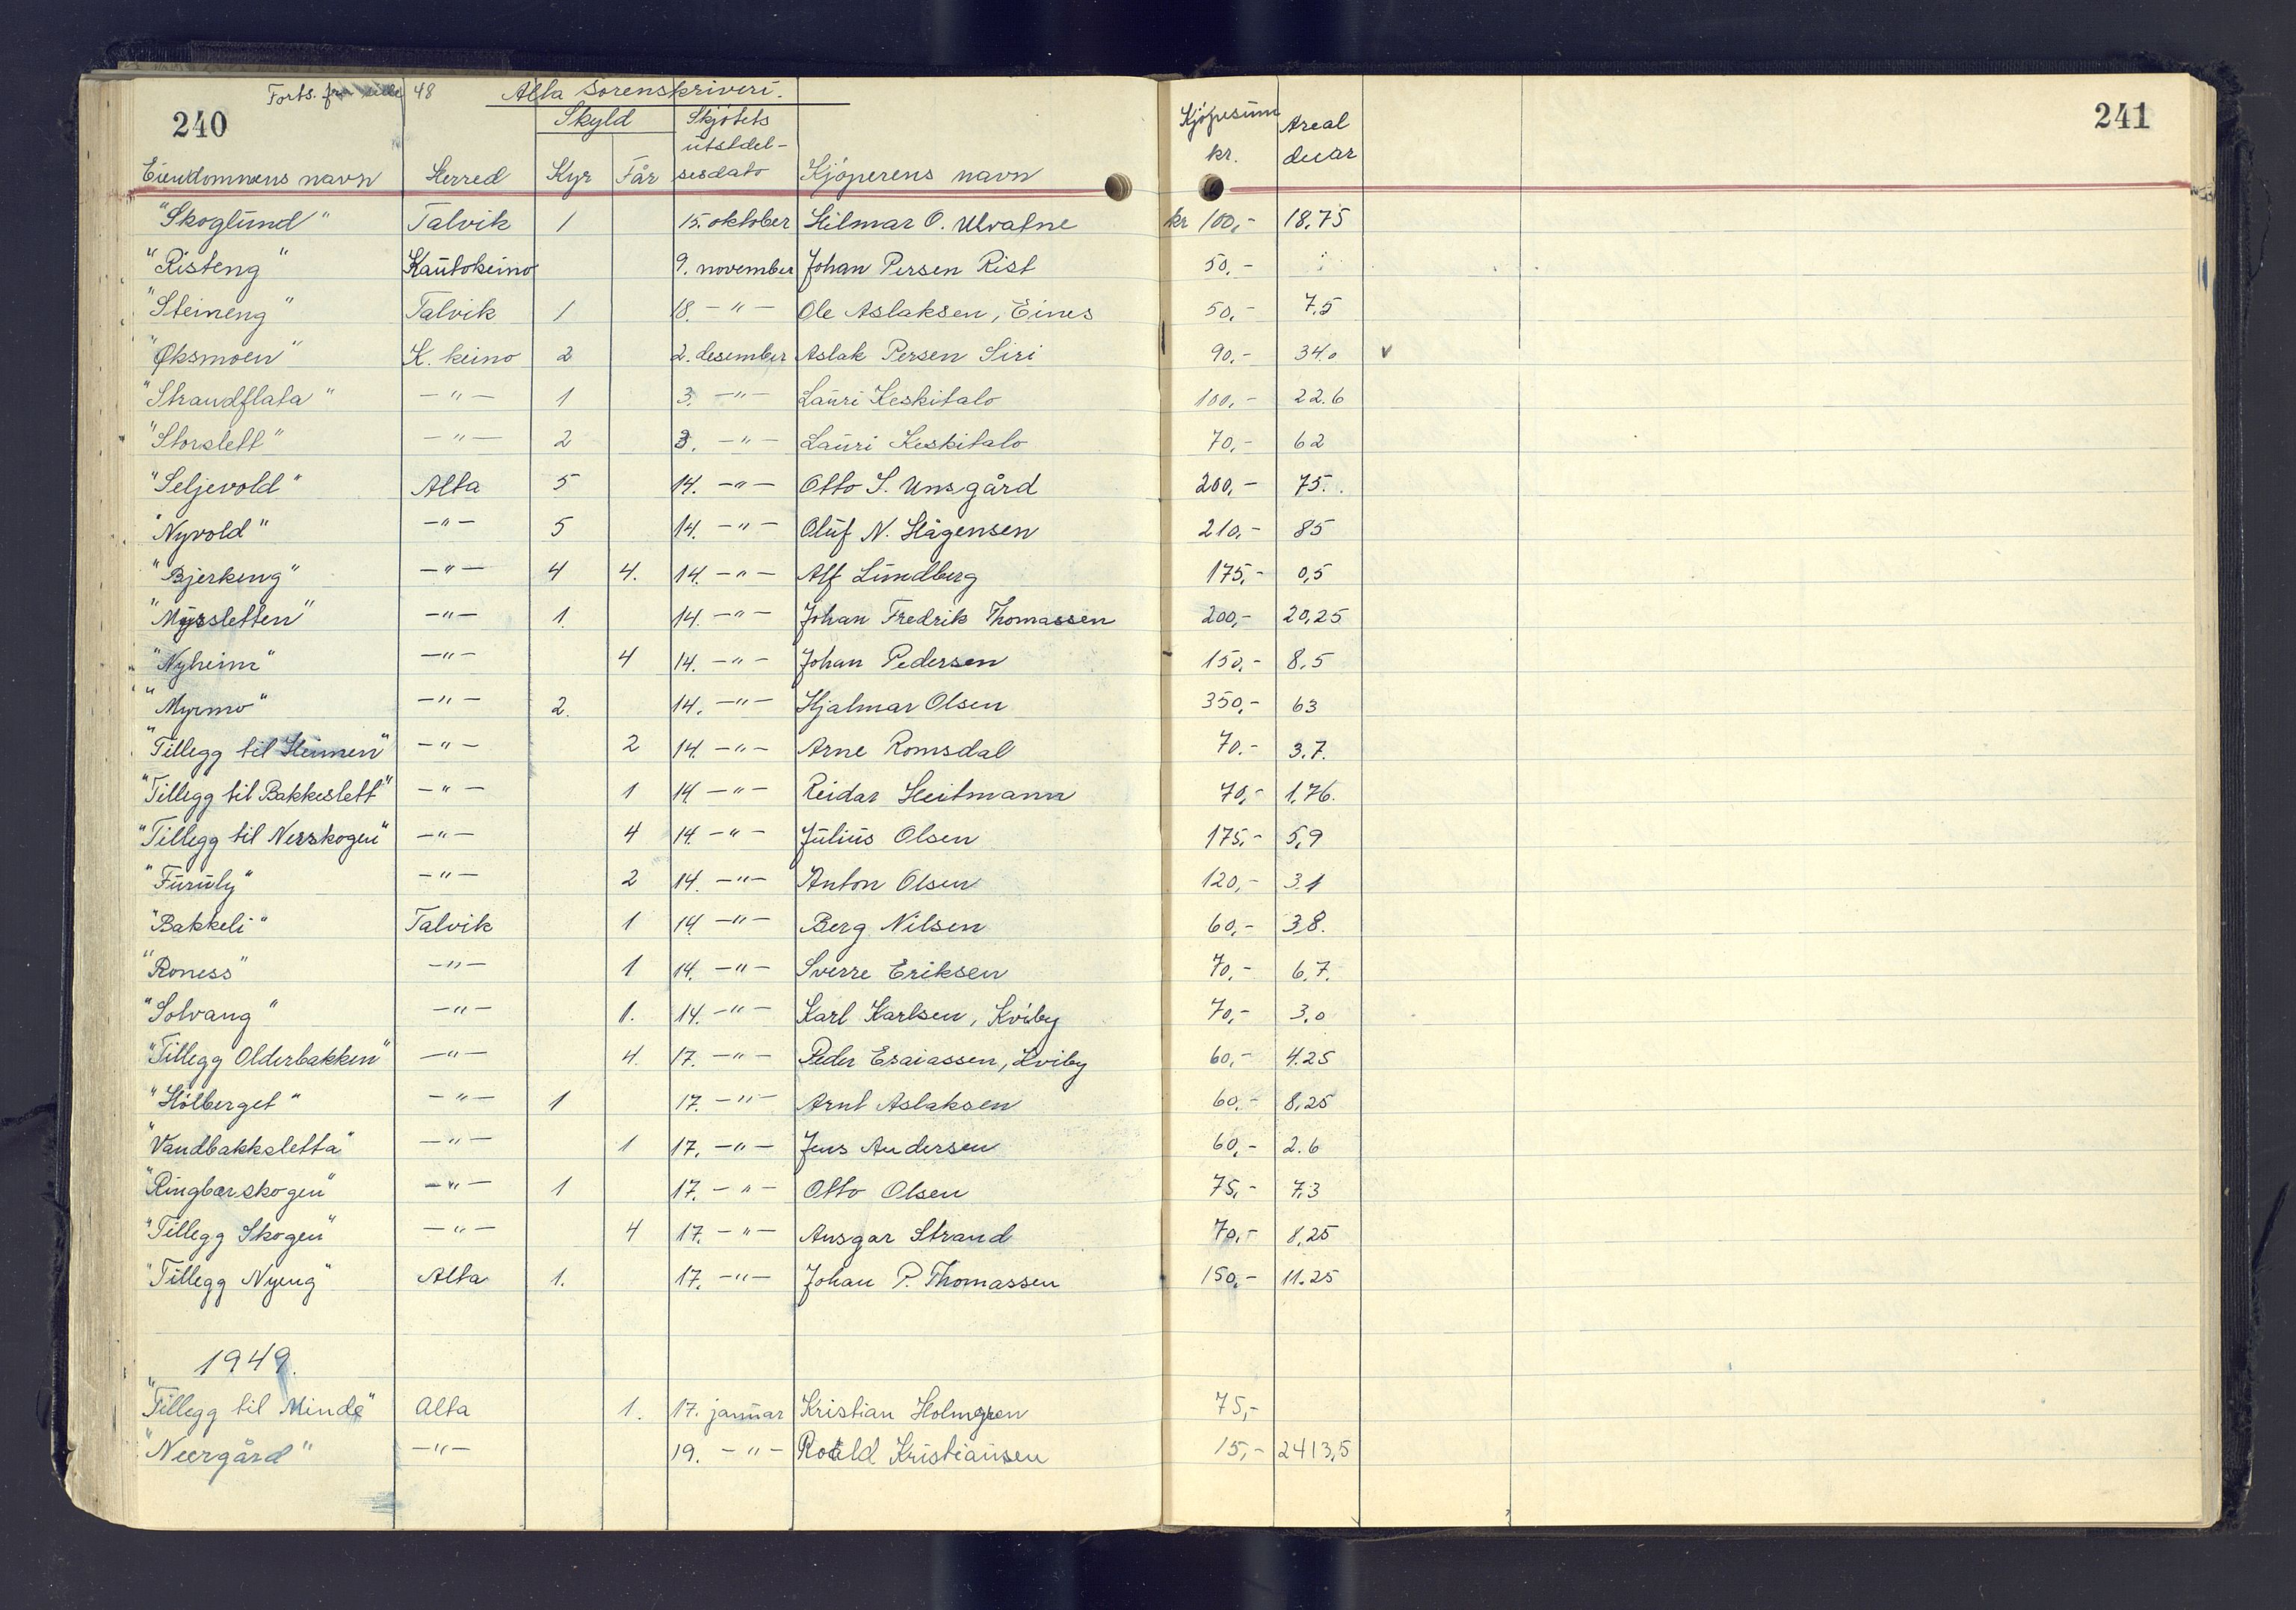 Forts. fra side 48 Alta Sorenskriveri.
240 241
Skyld Skjøtets Kjøpesum Areal
utstdel- kr. dekar
Eiendommens navn Herred Kyr Får sesdato Kjøperens navn
"Skoglund" Talvik 1 15. oktober Hilmar O. Ulvatne kr 100,- 18,75
"Risteng" Kautokeino 9. november Johan Persen Rist 50,-
"Steineng" Talvik 1 18. -"- Ole Aslaksen, Eines 50,- 7,5
"Øksmoen" K. keino 2 2. desember Aslak Persen Siri 90,- 34.0 v
"Strandflata" -"- 1 3. -"- Lauri Keskitalo 100,- 22.6
"Storslett" -"- 2 3. -"- Lauri Keskitalo 70,- 62
"Seljevold" Alta 5 14. -"- Otto S. Unsgård 200,- 75.
"Nyvold" -"- 5 14. -"- Oluf N. Hågensen 210,- 85
"Bjerkeng" -"- 4 4. 14. -"- Alf Lundberg 175,- 0,5
"Myrsletten" -"- 1. 14. -"- Johan Fredrik Thomassen 200,- 20,25
"Nyheim" -"- 4 14. -"- Johan Pedersen 150,- 8,5
"Myrmo" -"- 2. 14. -"- Hjalmar Olsen 350,- 63
"Tillegg til Heimen" -"- 2 14. -"- Arne Romsdal 70,- 3.7.
"Tillegg til Bakkeslett" -"- 1 14. -"- Reidar Heitmann 70,- 1,76.
"Tillegg til Nerskogen" -"- 4 14. -"- Julius Olsen 175,- 5,9
"Furuly" -"- 2 14. -"- Anton Olsen 120,- 3.1
"Bakkeli" Talvik 1 14. -"- Berg Nilsen 60,- 3,8.
"Roness" -"- 1 14. -"- Sverre Eriksen 70,- 6,7.
"Solvang" -"- 1. 14. -"- Karl Karlsen, Kviby 70,- 3,0
"Tillegg Olderbakken" -"- 4. 17. -"- Peder Esaiassen, Kviby 60,- 4.25
"Holberget" -"- 1 17. -"- Arnt Aslaksen 60,- 8,25
"Vandbakksletta" -"- 1 17. -"- Jens Andersen 60,- 2.6
"Ringbærskogen" -"- 1 17. -"- Otto Olsen 75,- 7,3
"Tillegg Skogen" -"- 4 17. -"- Ansgar Strand 70,- 8,25
"Tillegg Nyeng" Alta 1. 17. -"- Johan P. Thomassen 150,- 11.25
1949.
"Tillegg til Minde" Alta 1. 17. januar Kristian Holmgren 75,-
"Neergård" -"- 19. -"- Roald Kristiansen 15,- 2413,5